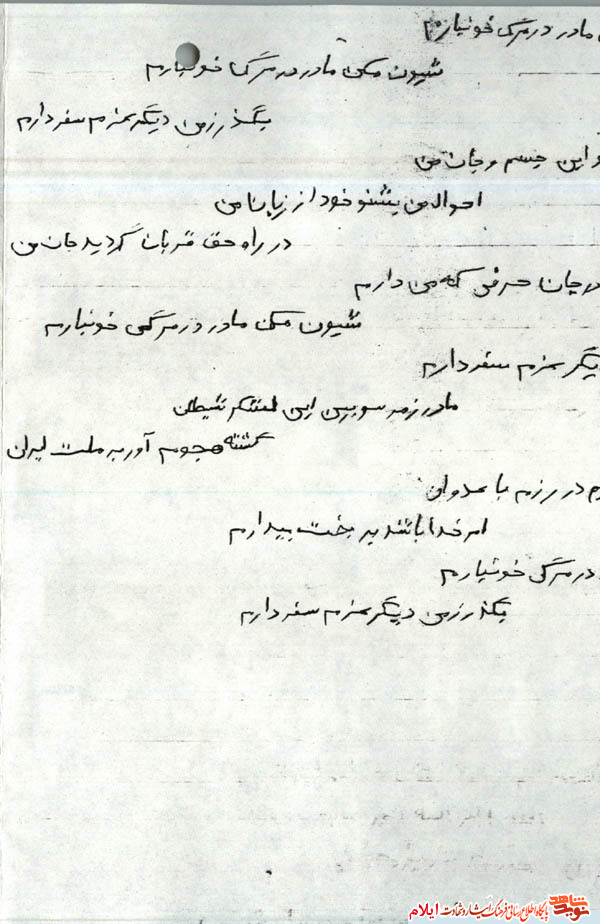 مادر در مرگ خونبارم
شیون مکن مادر در مرگ خونبارم
بگذر زمن دیگر عزم سفر دارم
و این جسم و جان من
احوال من بشنو خود از زبان من
در راه حق قربان گردید جان من
جان حرفی که من دارم
شیون مکن مادر در مرگ خونبارم
دیگر عزم سفر دارم
مادر زهر سو بین این لشکر شیطان
گشته هجوم آور به ملت ایران
در رزم با عدوان
امر خدا باشد بر بخت بیدارم
در مرگ خونبارم
بگذر زمن دیگر عزم سفر دارم
نوید شاهد پایگاه اطلاع رسانی فرهنگ ایثار و شهادت ایلام